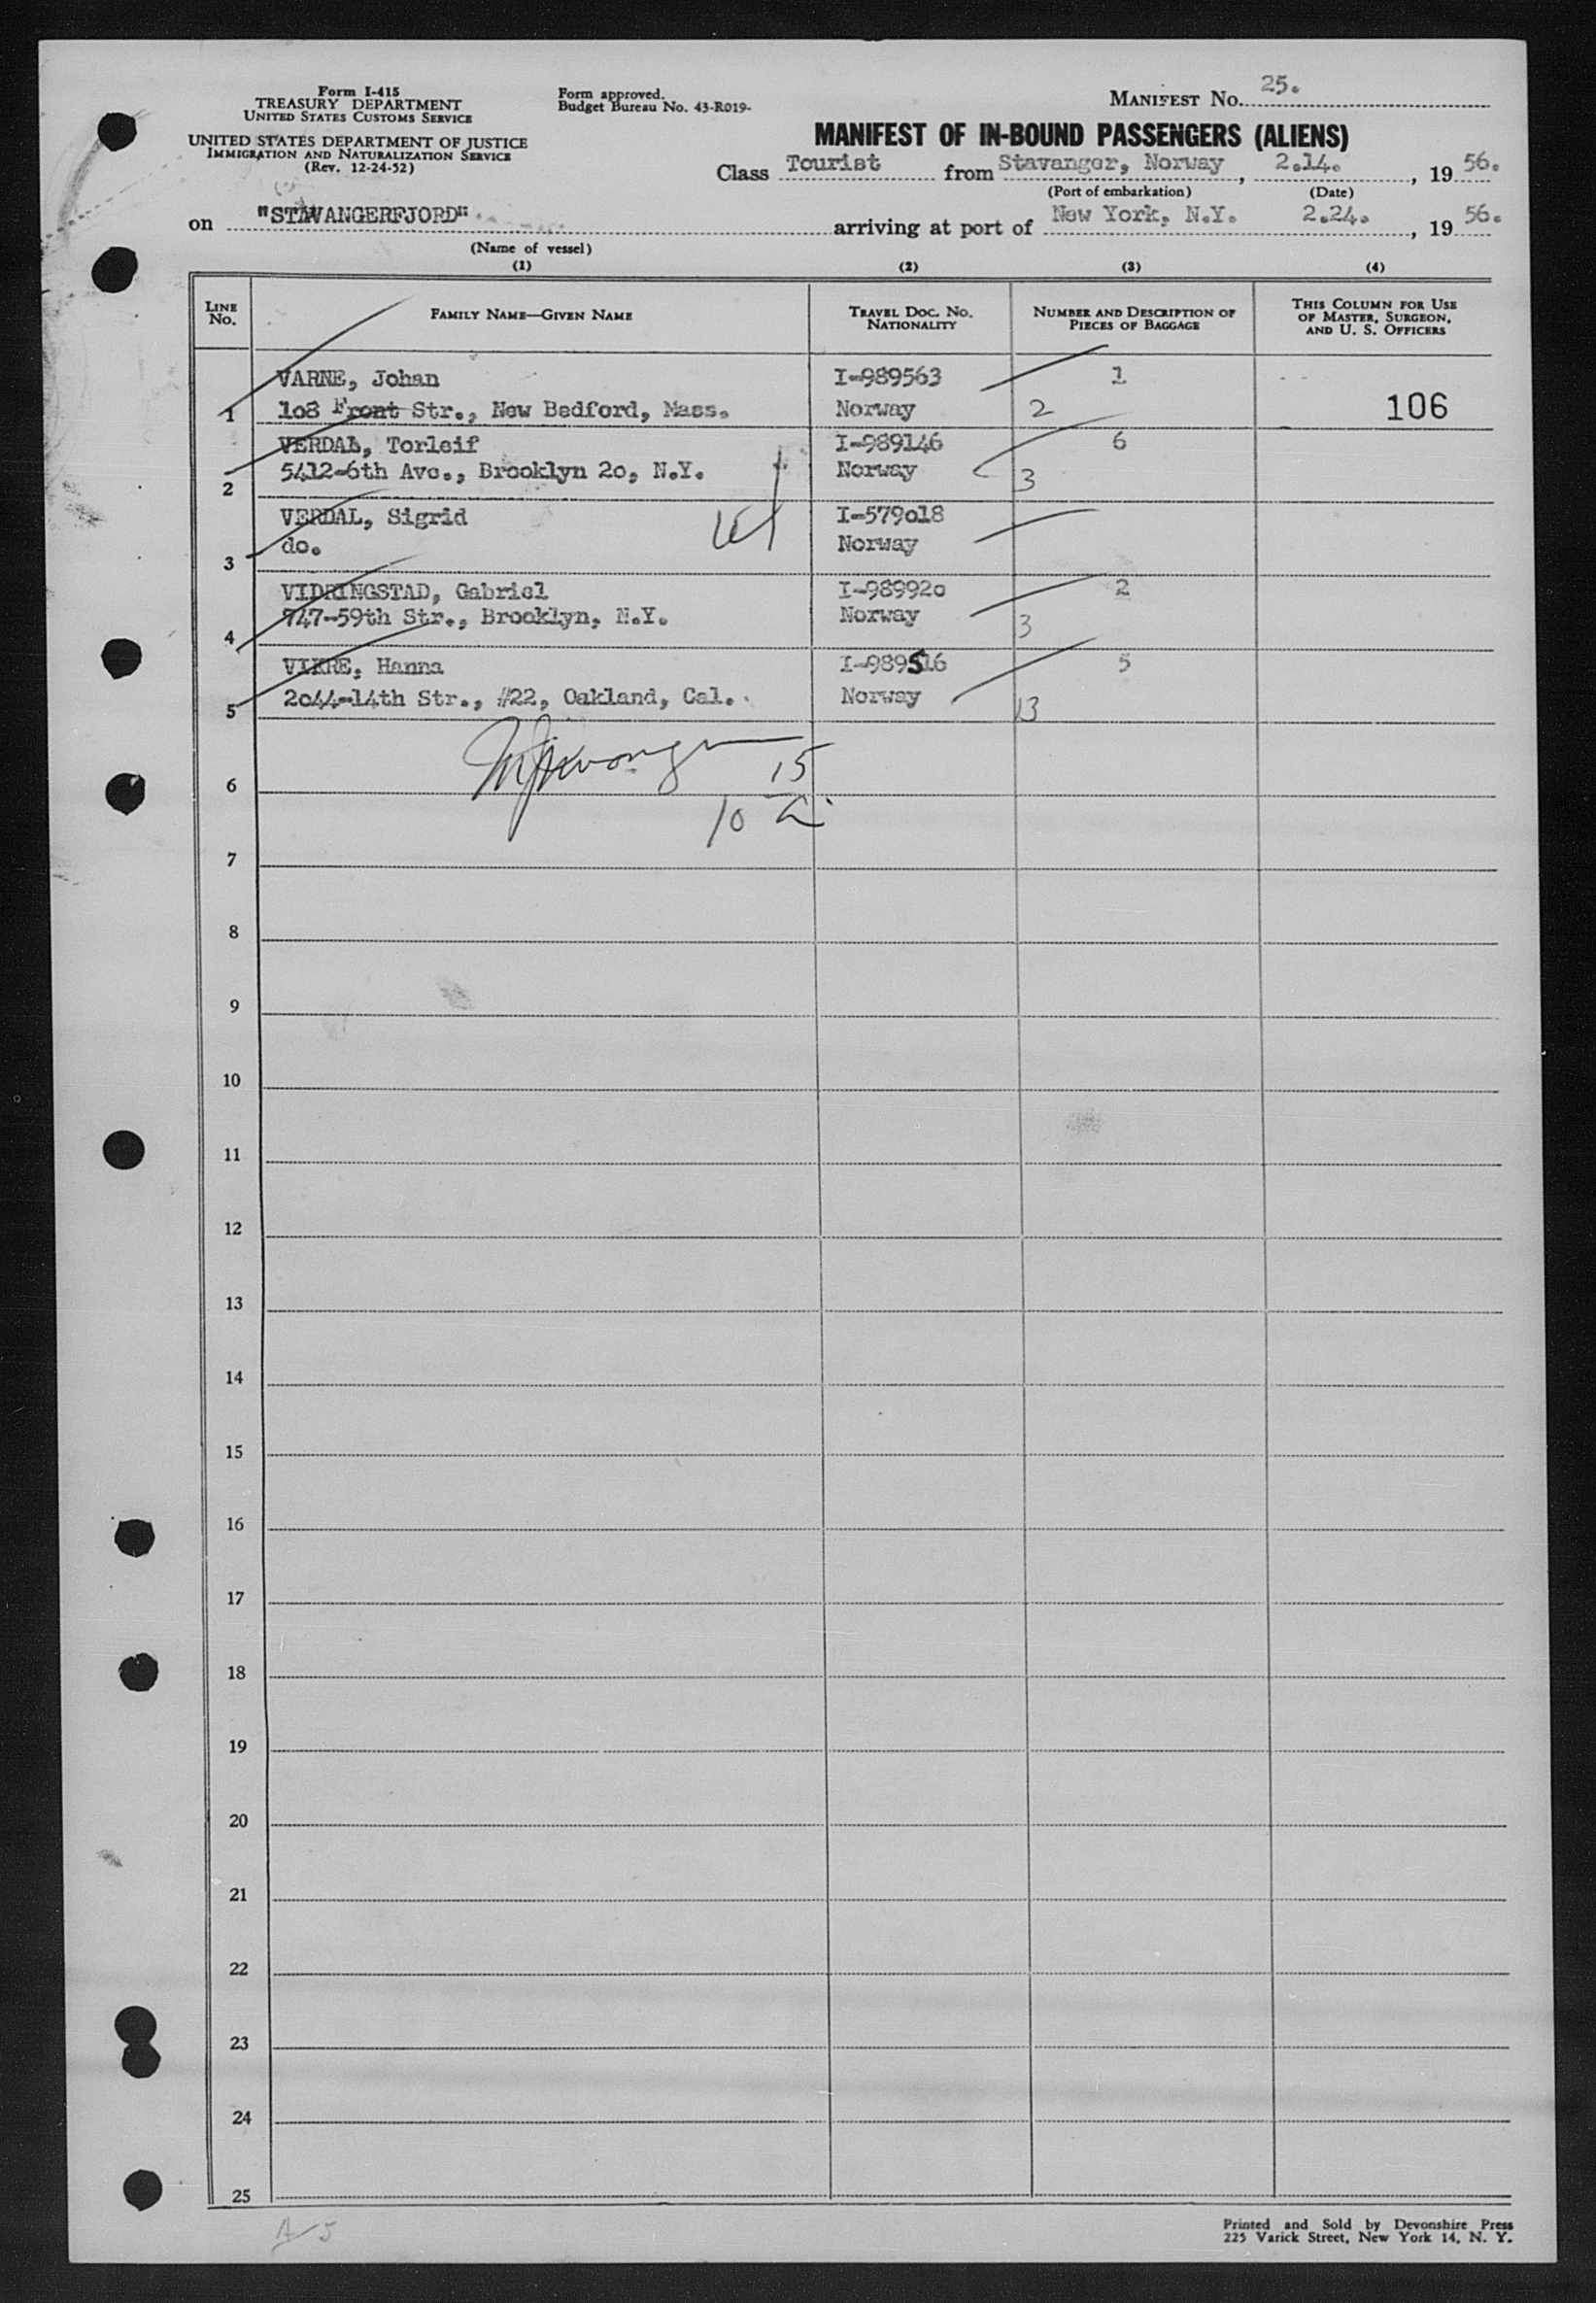 Form I-415
TREASURY DEPARTMENT
UNITED STATES CUSTOMS SERVICE
UNITED STATES DEPARTMENT OF JUSTICE
IMMIGRATION AND NATURALIZATION SERVICE
(Rev. 12-24-52)
Form approved.
Budget Bureau No. 43-R019-
MANIFEST NO. 25.
MANIFEST OF IN-BOUND PASSENGERS (ALIENS)
Class Tourist from Stavanger, Norway, 2.14., 1956.
(Port of embarkation) (Date)
on "STAVANGERFJORD" arriving at port of New York, N.Y. 2.24., 1956.
(Name of vessel)
(1) (2) (3) (4)
LINE NO. FAMILY NAME—GIVEN NAME TRAVEL DOC. NO. NATIONALITY NUMBER AND DESCRIPTION OF PIECES OF BAGGAGE THIS COLUMN FOR USE OF MASTER, SURGEON, AND U. S. OFFICERS
VARNE, Johan I-989563 1
1 1o8 Front Str., New Bedford, Mass. Norway 2 106
VERDAL, Torleif I-989146 6
2 5412-6th Ave., Brooklyn 2o, N.Y. Norway 3
VERDAL, Sigrid I-579o18
3 do. Norway
VIDRINGSTAD, Gabriel I-98992o 2
4 747-59th Str., Brooklyn, N.Y. Norway 3
VIKRE, Hanna I-989516 5
5 2o44-14th Str., #22, Oakland, Cal. Norway 13
6 15
10
7
8
9
10
11
12
13
14
15
16
17
18
19
20
21
22
23
24
25
A-5
Printed and Sold by Devonshire Press
225 Varick Street, New York 14, N. Y.